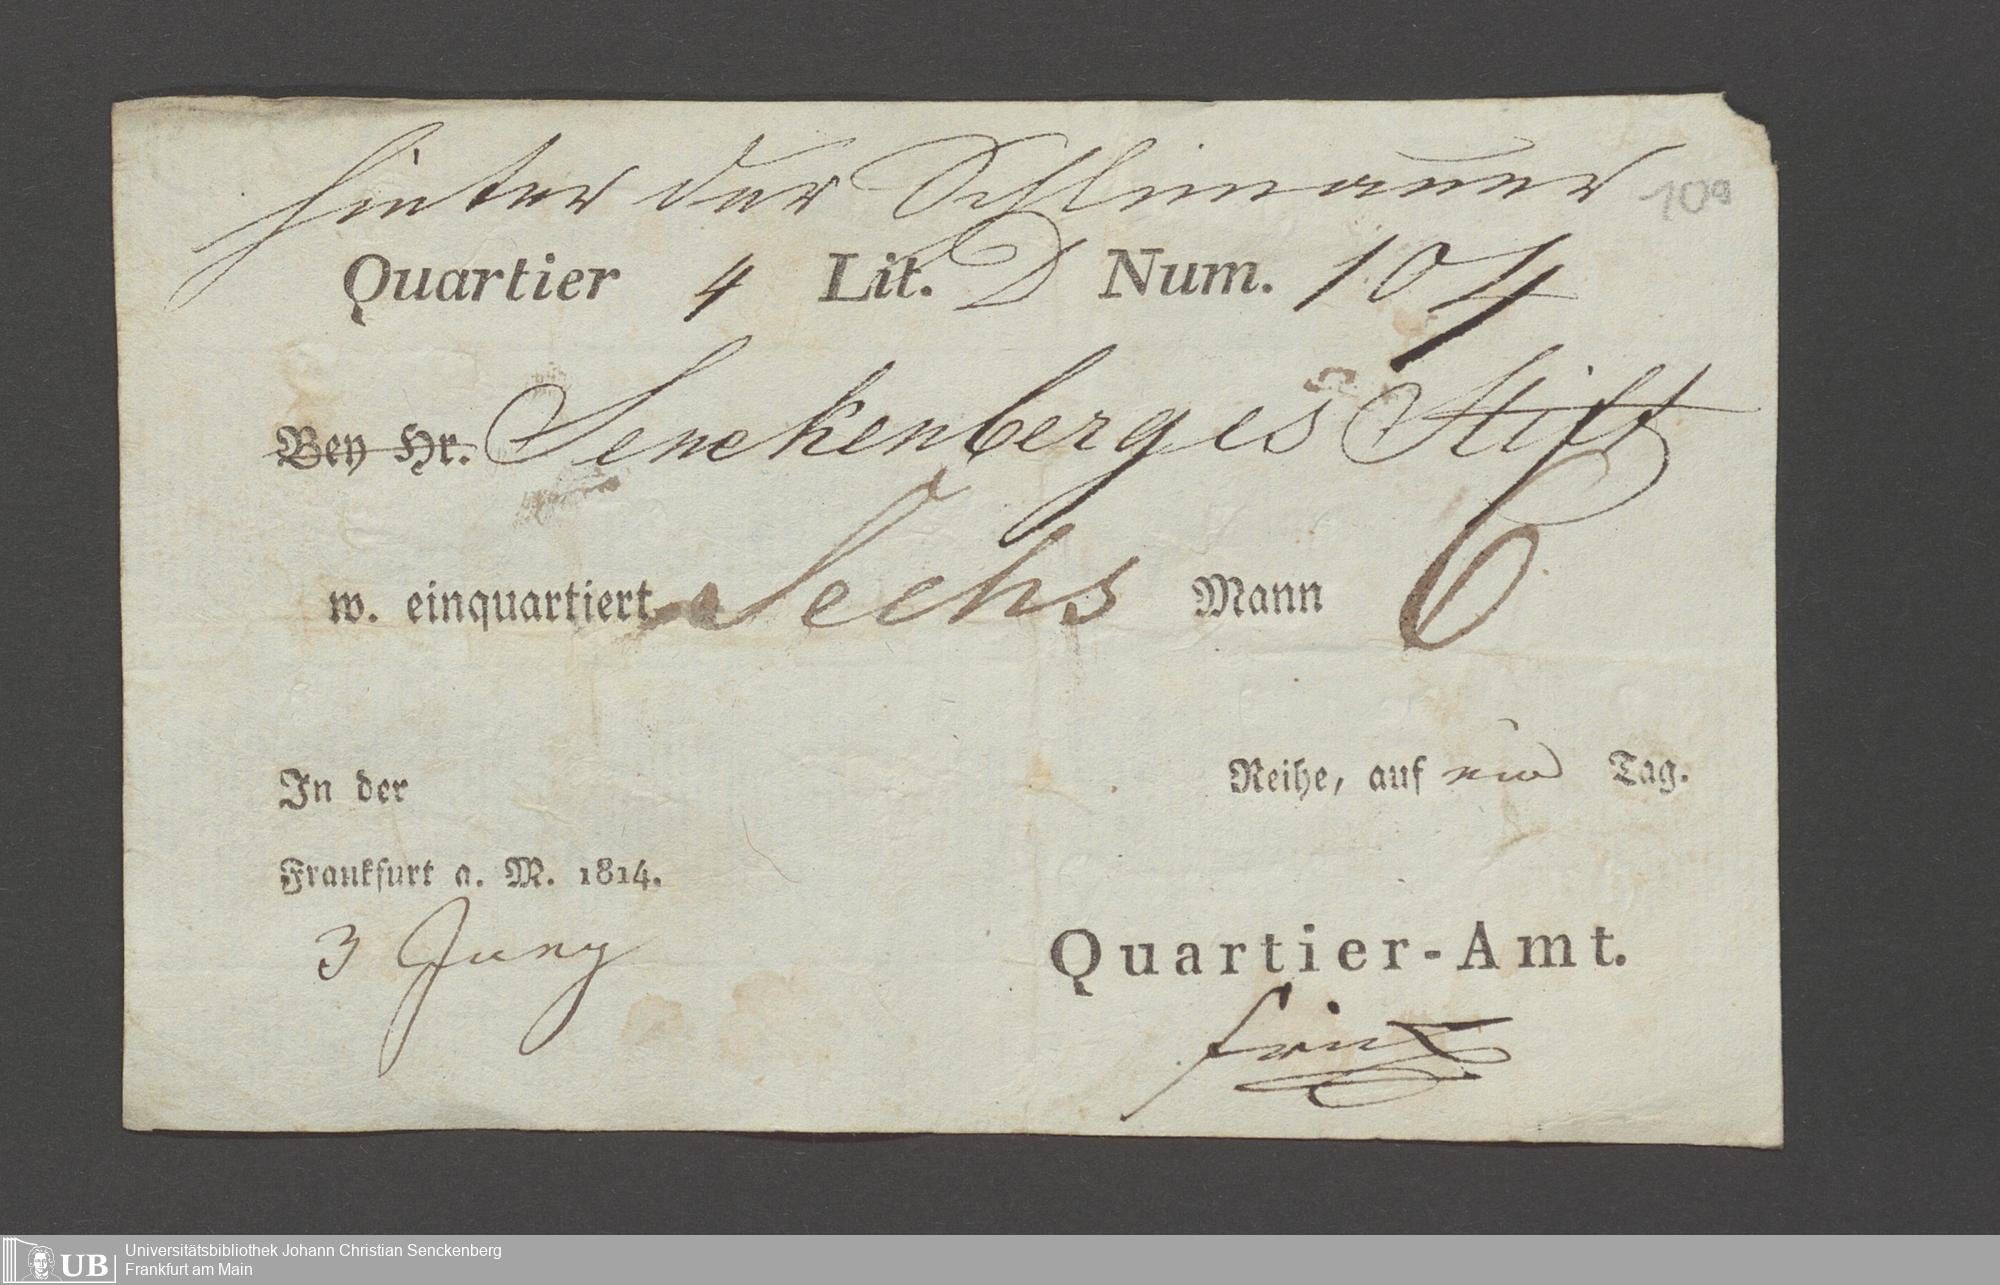 hinter der Schlimauer
109
Quartier 4 Lit. D Num. 104
Bey Hr. Senckenberges Stift
w. einquartiert Sechs Mann 6
In der Reihe, auf ein Tag.
Frankfurt a. M. 1814.
3 Juny
Quartier-Amt.
UB Universitätsbibliothek Johann Christian Senckenberg
Frankfurt am Main